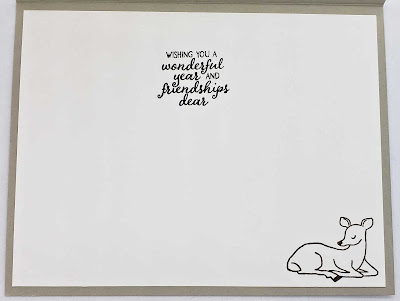 WISHING YOU A
wonderful
year AND
friendships
dear